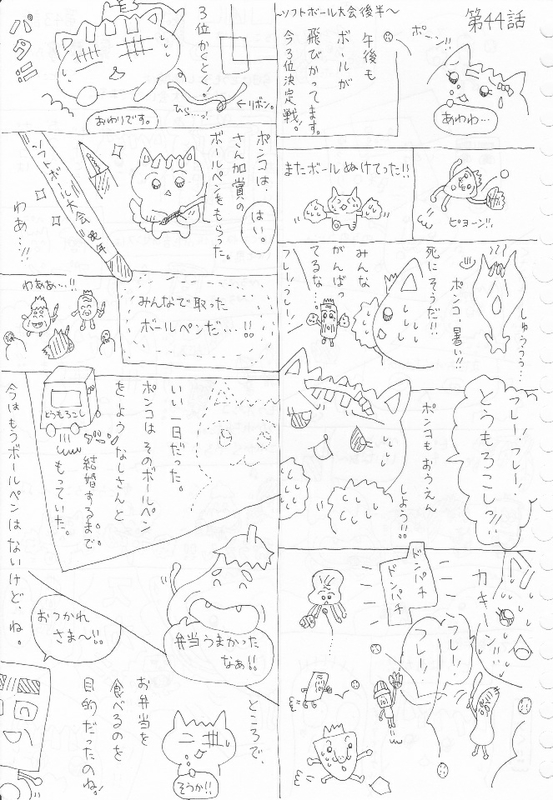 第44話
～ソフトボール大会後半～
ポーン!!
午後も
ボールが
飛びかってます。
今3位決定戦!
あわわ…
ピヨーン!!
またボールぬけてった!!
しゅううう…
ポンコ、暑い!!
死にそうだ!!
みんな
がんばっ
てるな…
フレーフレー!
フレーフレー、
とうもろこしっ!!
ポンコもおうえん
しよう!!
カキーン!!
ドンパチ
ドンパチ
フレー!
フレー!
3位かくとく。
←リボン。
ひら…っ
パタ!!
おわりです。
ポンコは、
さん加賞の
ボールペンをもらった。
はい。
ソフトボール大会
わあ…!!
みんなで取った
ボールペンだ…!!
わああ…!!
いい一日だった。
ポンコはそのボールペン
を ようなしさんと
結婚するまで
もっていた。
とうもろこし
今はもうボールペンはないけど、ね。
弁当うまかった
なぁ!!
おつかれ
さま～!!
ところで、
お弁当を
食べるのを
目的だったのね!
そうか!!